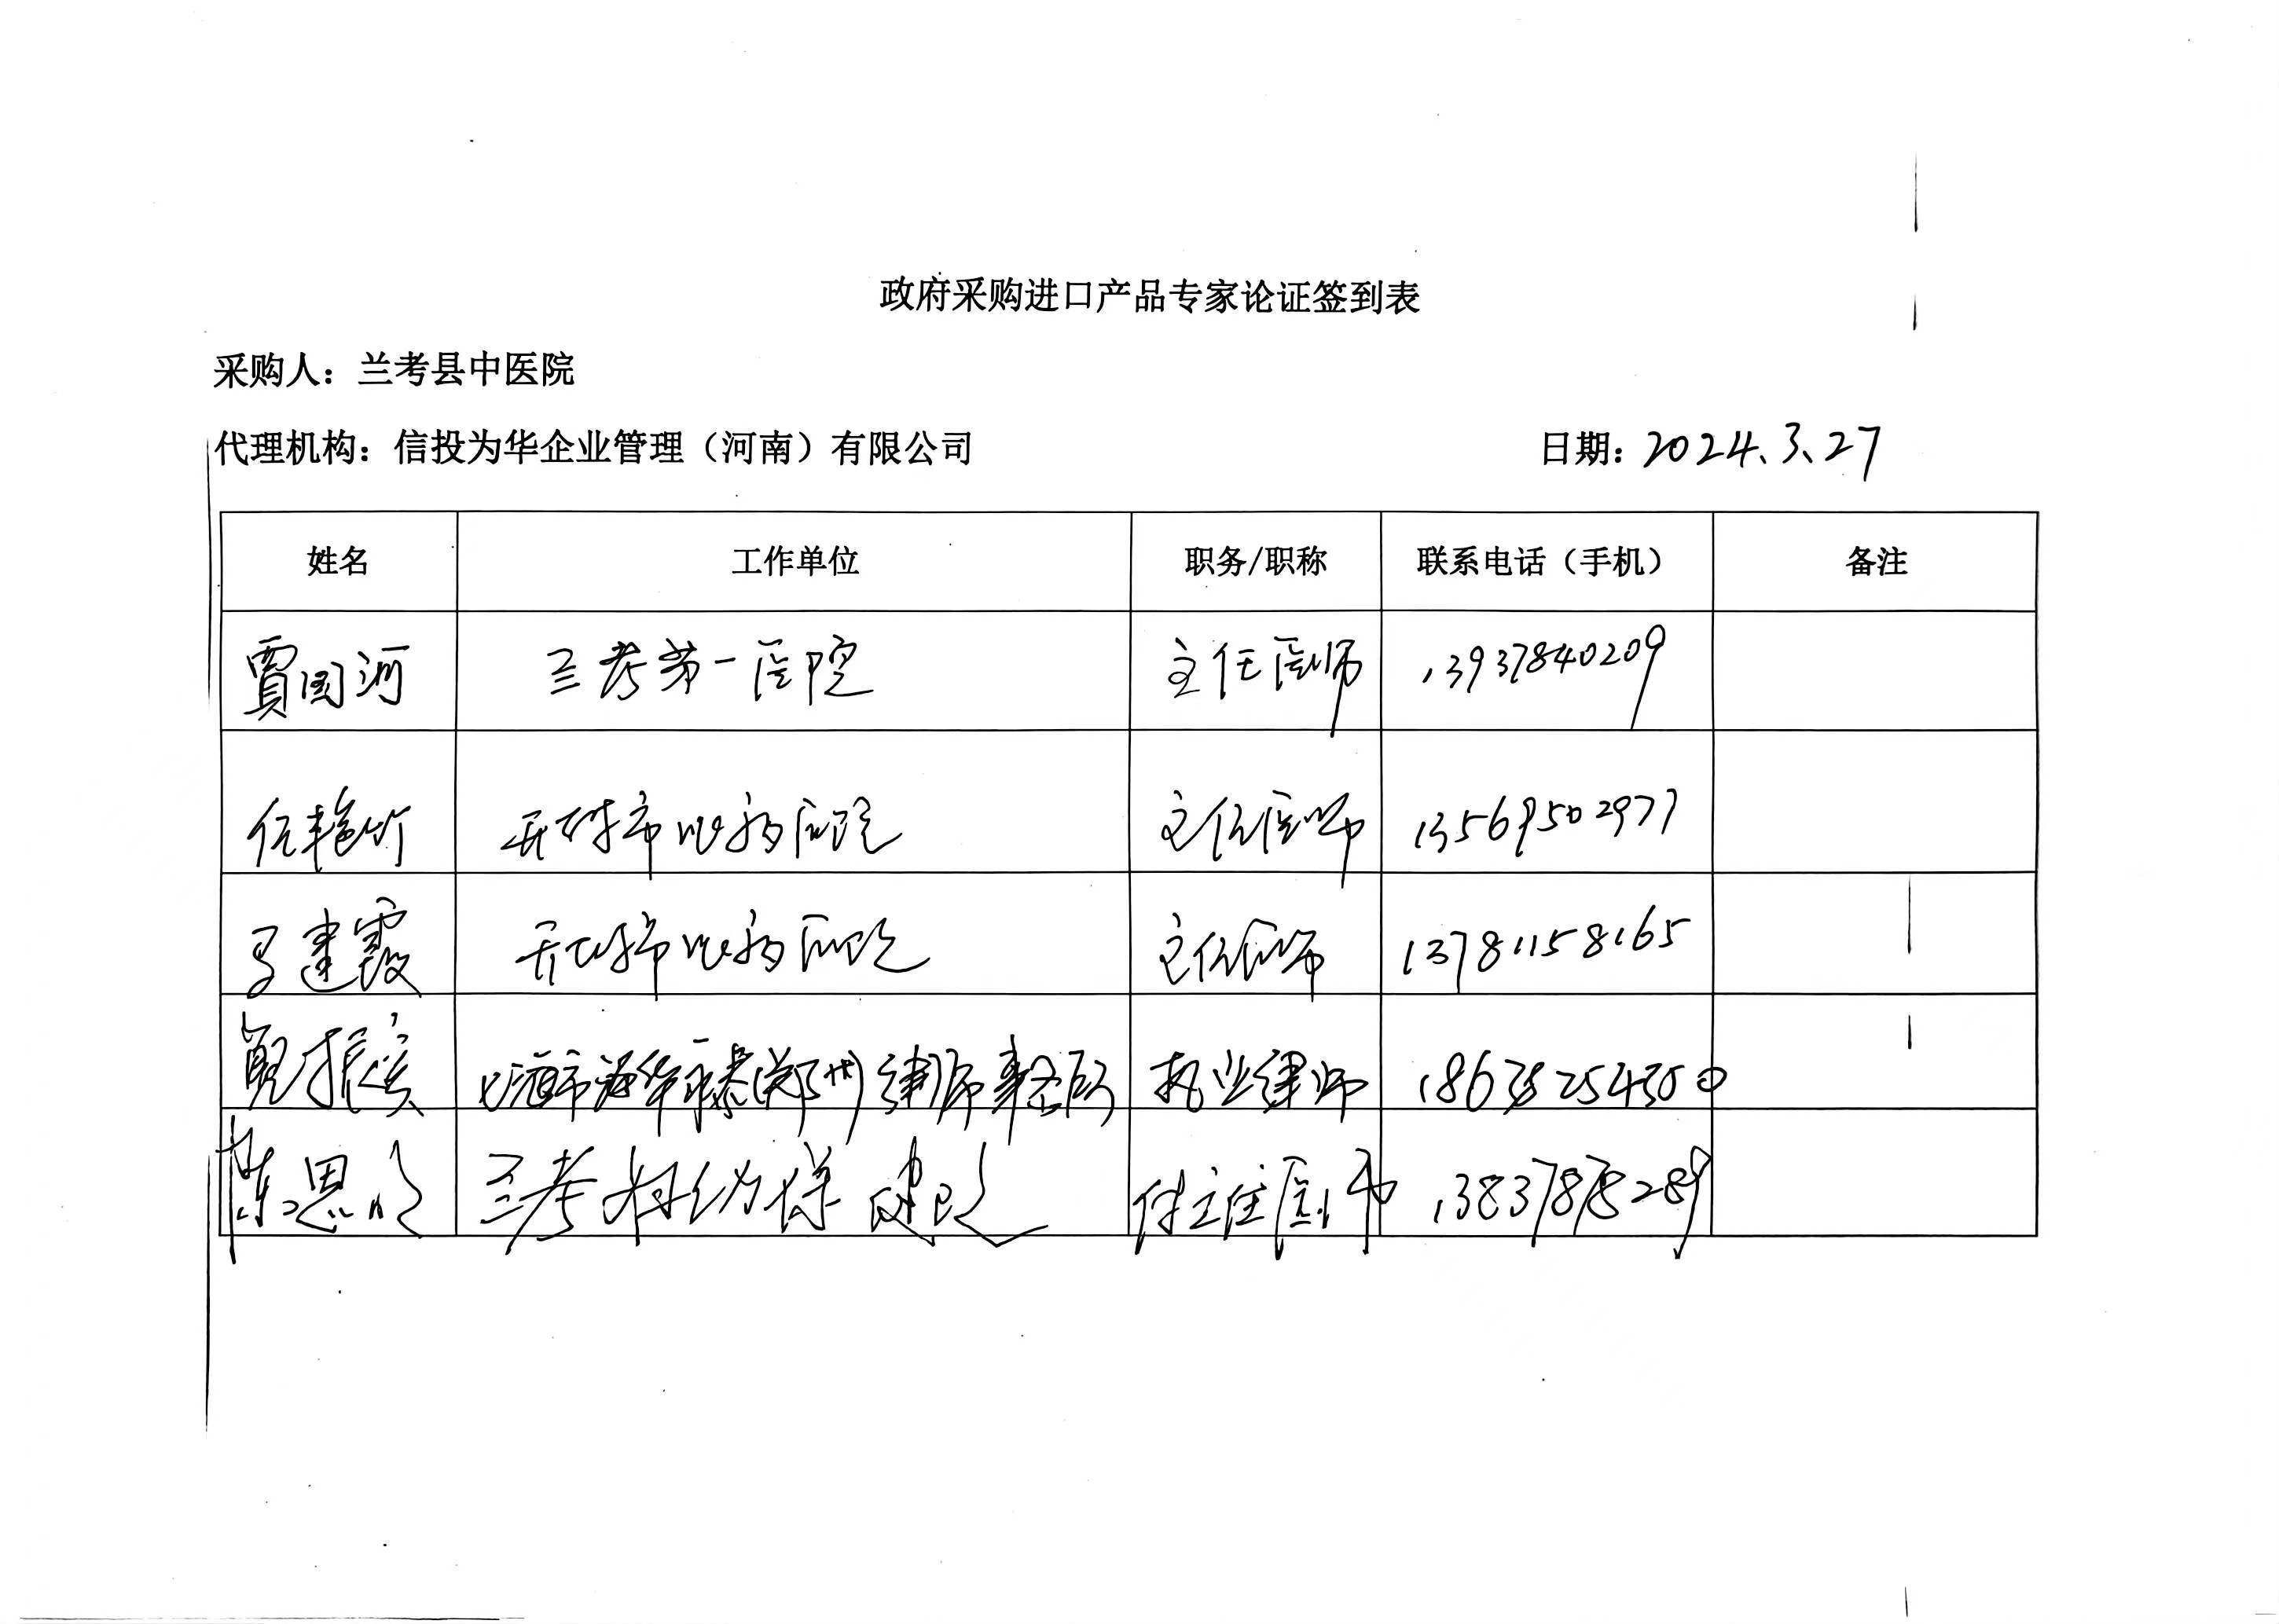 政府采购进口产品专家论证签到表
采购人：兰考县中医院
代理机构：信投为华企业管理（河南）有限公司 日期：2024.3.27
姓名 工作单位 职务/职称 联系电话（手机） 备注
贾国河 兰考第一医院 主任医师 13937840209
任艳竹 开封市心病医院 主任医师 13569502977
马建霞 开封市心病医院 主任医师 13781158165
律师事务所 执业律师
陈思 兰考 保健院 付主任医师